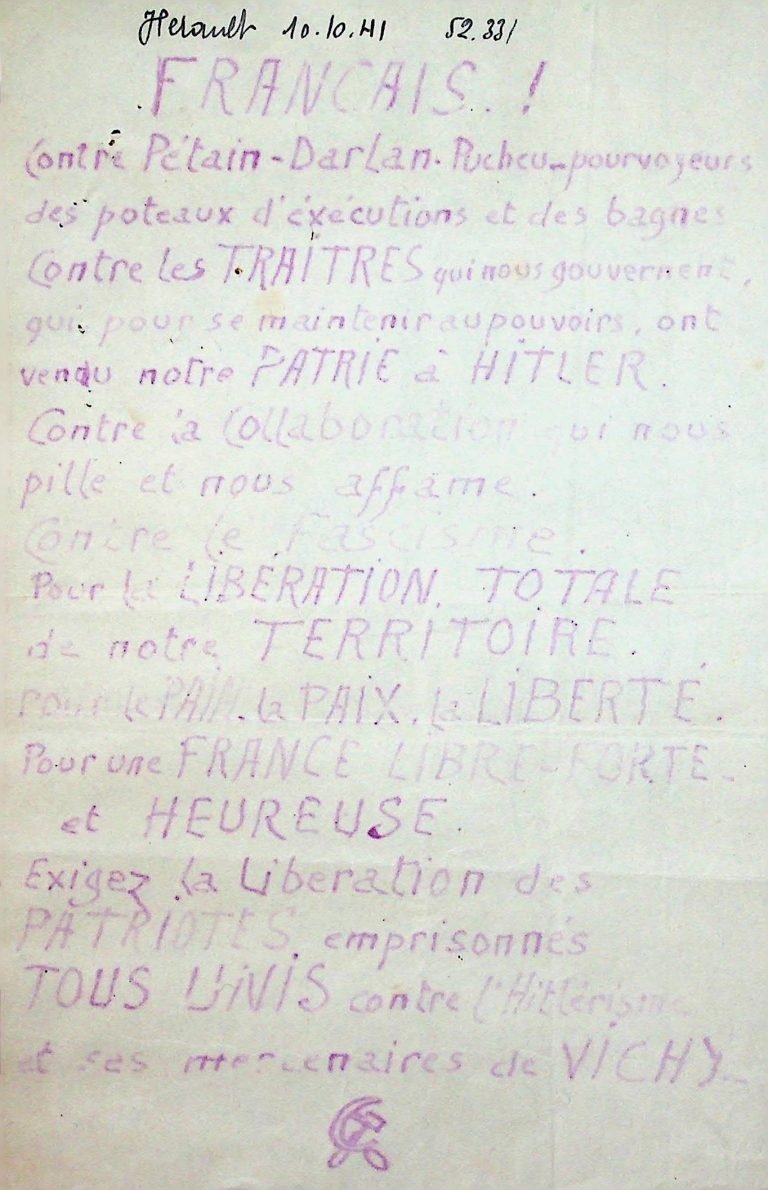 Hérault 10.10.41 52.331
FRANCAIS..!
Contre Pétain-Darlan. Pucheu-pourvoyeurs
des poteaux d'éxécutions et des bagnes
Contre les TRAITRES qui nous gouvernent,
qui, pour se maintenir au pouvoirs, ont
vendu notre PATRIE à HITLER.
Contre la Collaboration qui nous
pille et nous affame.
Contre le Fascisme.
Pour la LIBÉRATION. TOTALE
de notre TERRITOIRE.
Pour le PAIN. la PAIX. la LIBERTÉ.
Pour une FRANCE LIBRE-FORTE-
et HEUREUSE.
Exigez la Liberation des
PATRIOTES. emprisonnés
TOUS UNIS contre l'Hitlérisme
et ses mercenaires de VICHY-